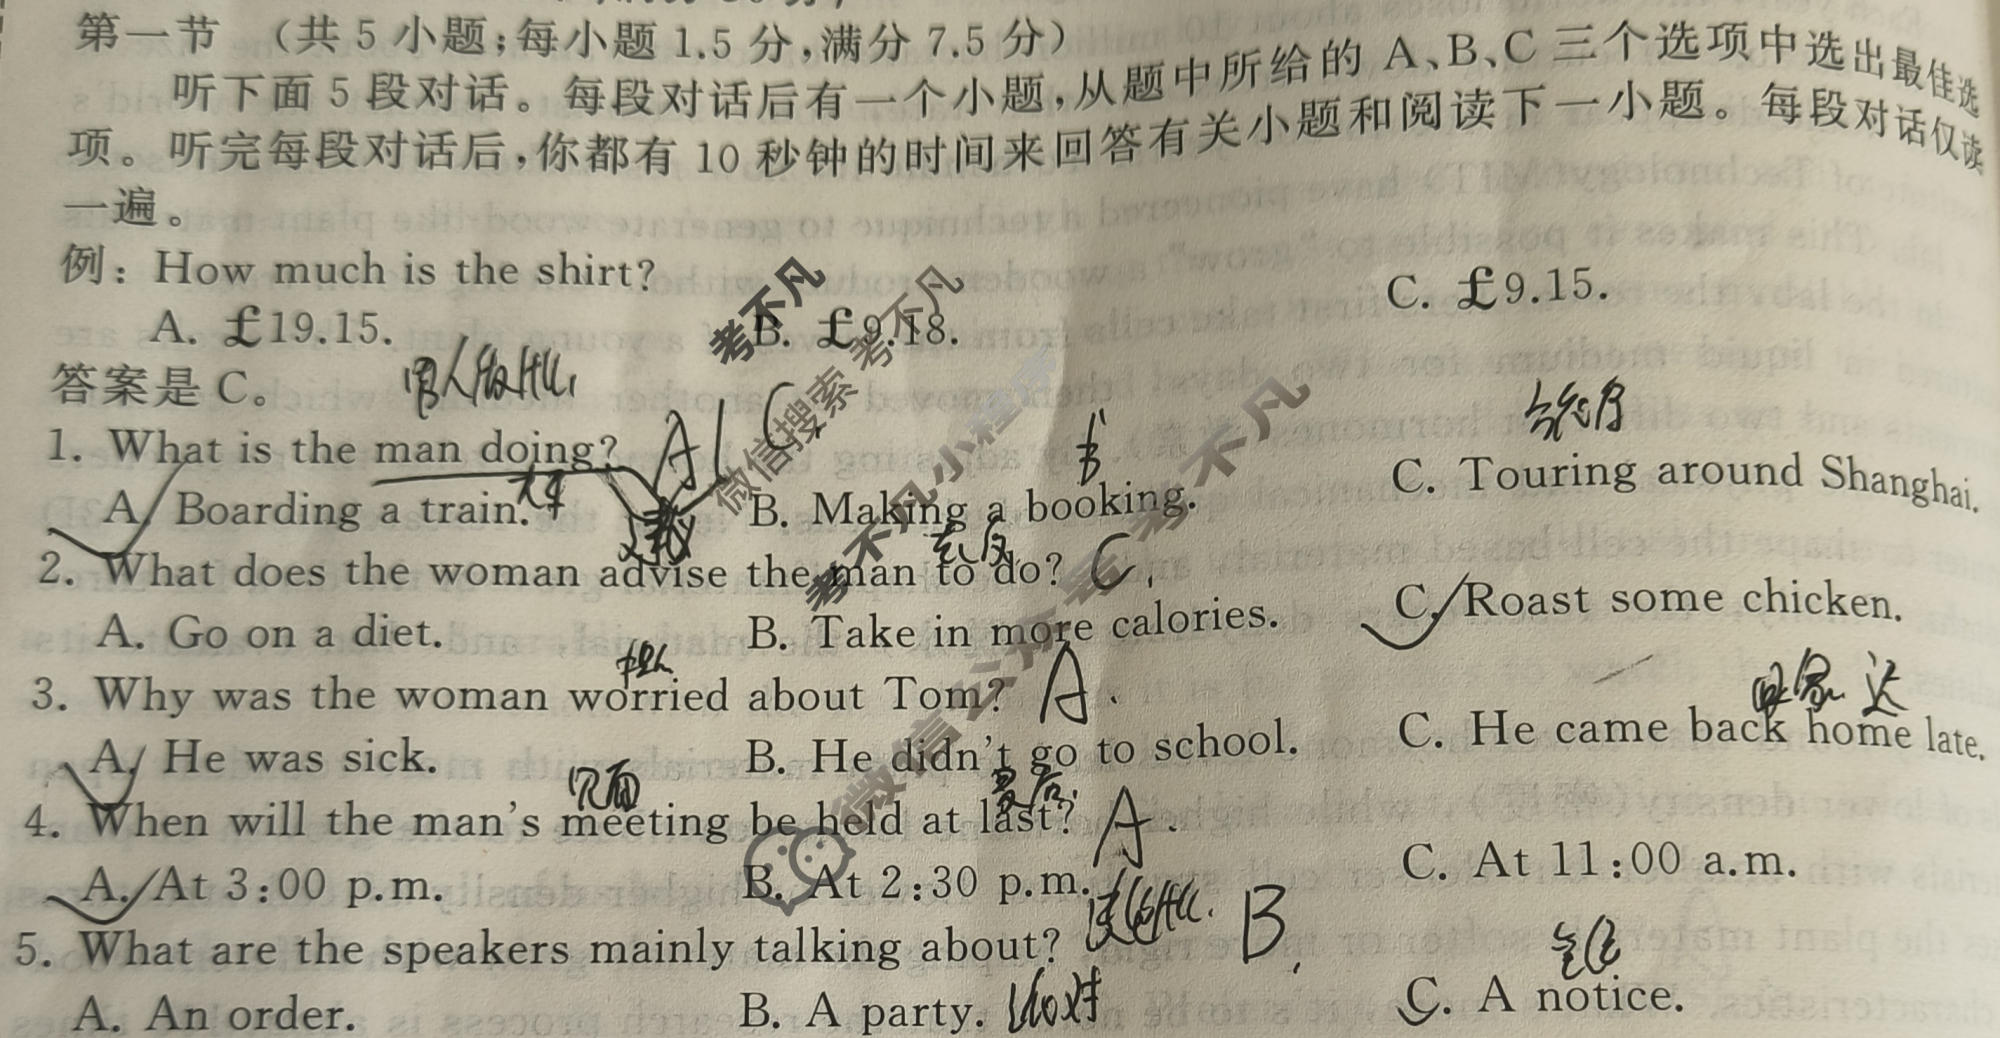 第一节 （共 5 小题;每小题 1.5 分,满分 7.5 分）
听下面 5 段对话。每段对话后有一个小题,从题中所给的 A、B、C 三个选项中选出最佳选
项。听完每段对话后,你都有 10 秒钟的时间来回答有关小题和阅读下一小题。每段对话仅读
一遍。
例: How much is the shirt?
A. £19.15. B. £9.18. C. £9.15.
答案是 C。
1. What is the man doing? A C
A. Boarding a train. B. Making a booking. C. Touring around Shanghai.
2. What does the woman advise the man to do? C.
A. Go on a diet. B. Take in more calories. C. Roast some chicken.
3. Why was the woman worried about Tom? A.
A. He was sick. B. He didn't go to school. C. He came back home late.
回家 迟
4. When will the man's meeting be held at last? A.
见面
最后
A. At 3:00 p.m. B. At 2:30 p.m. C. At 11:00 a.m.
5. What are the speakers mainly talking about? B.
A. An order. B. A party. C. A notice.
派对
考不凡
微信搜索 考不凡
考不凡小程序
微信公众号 考不凡